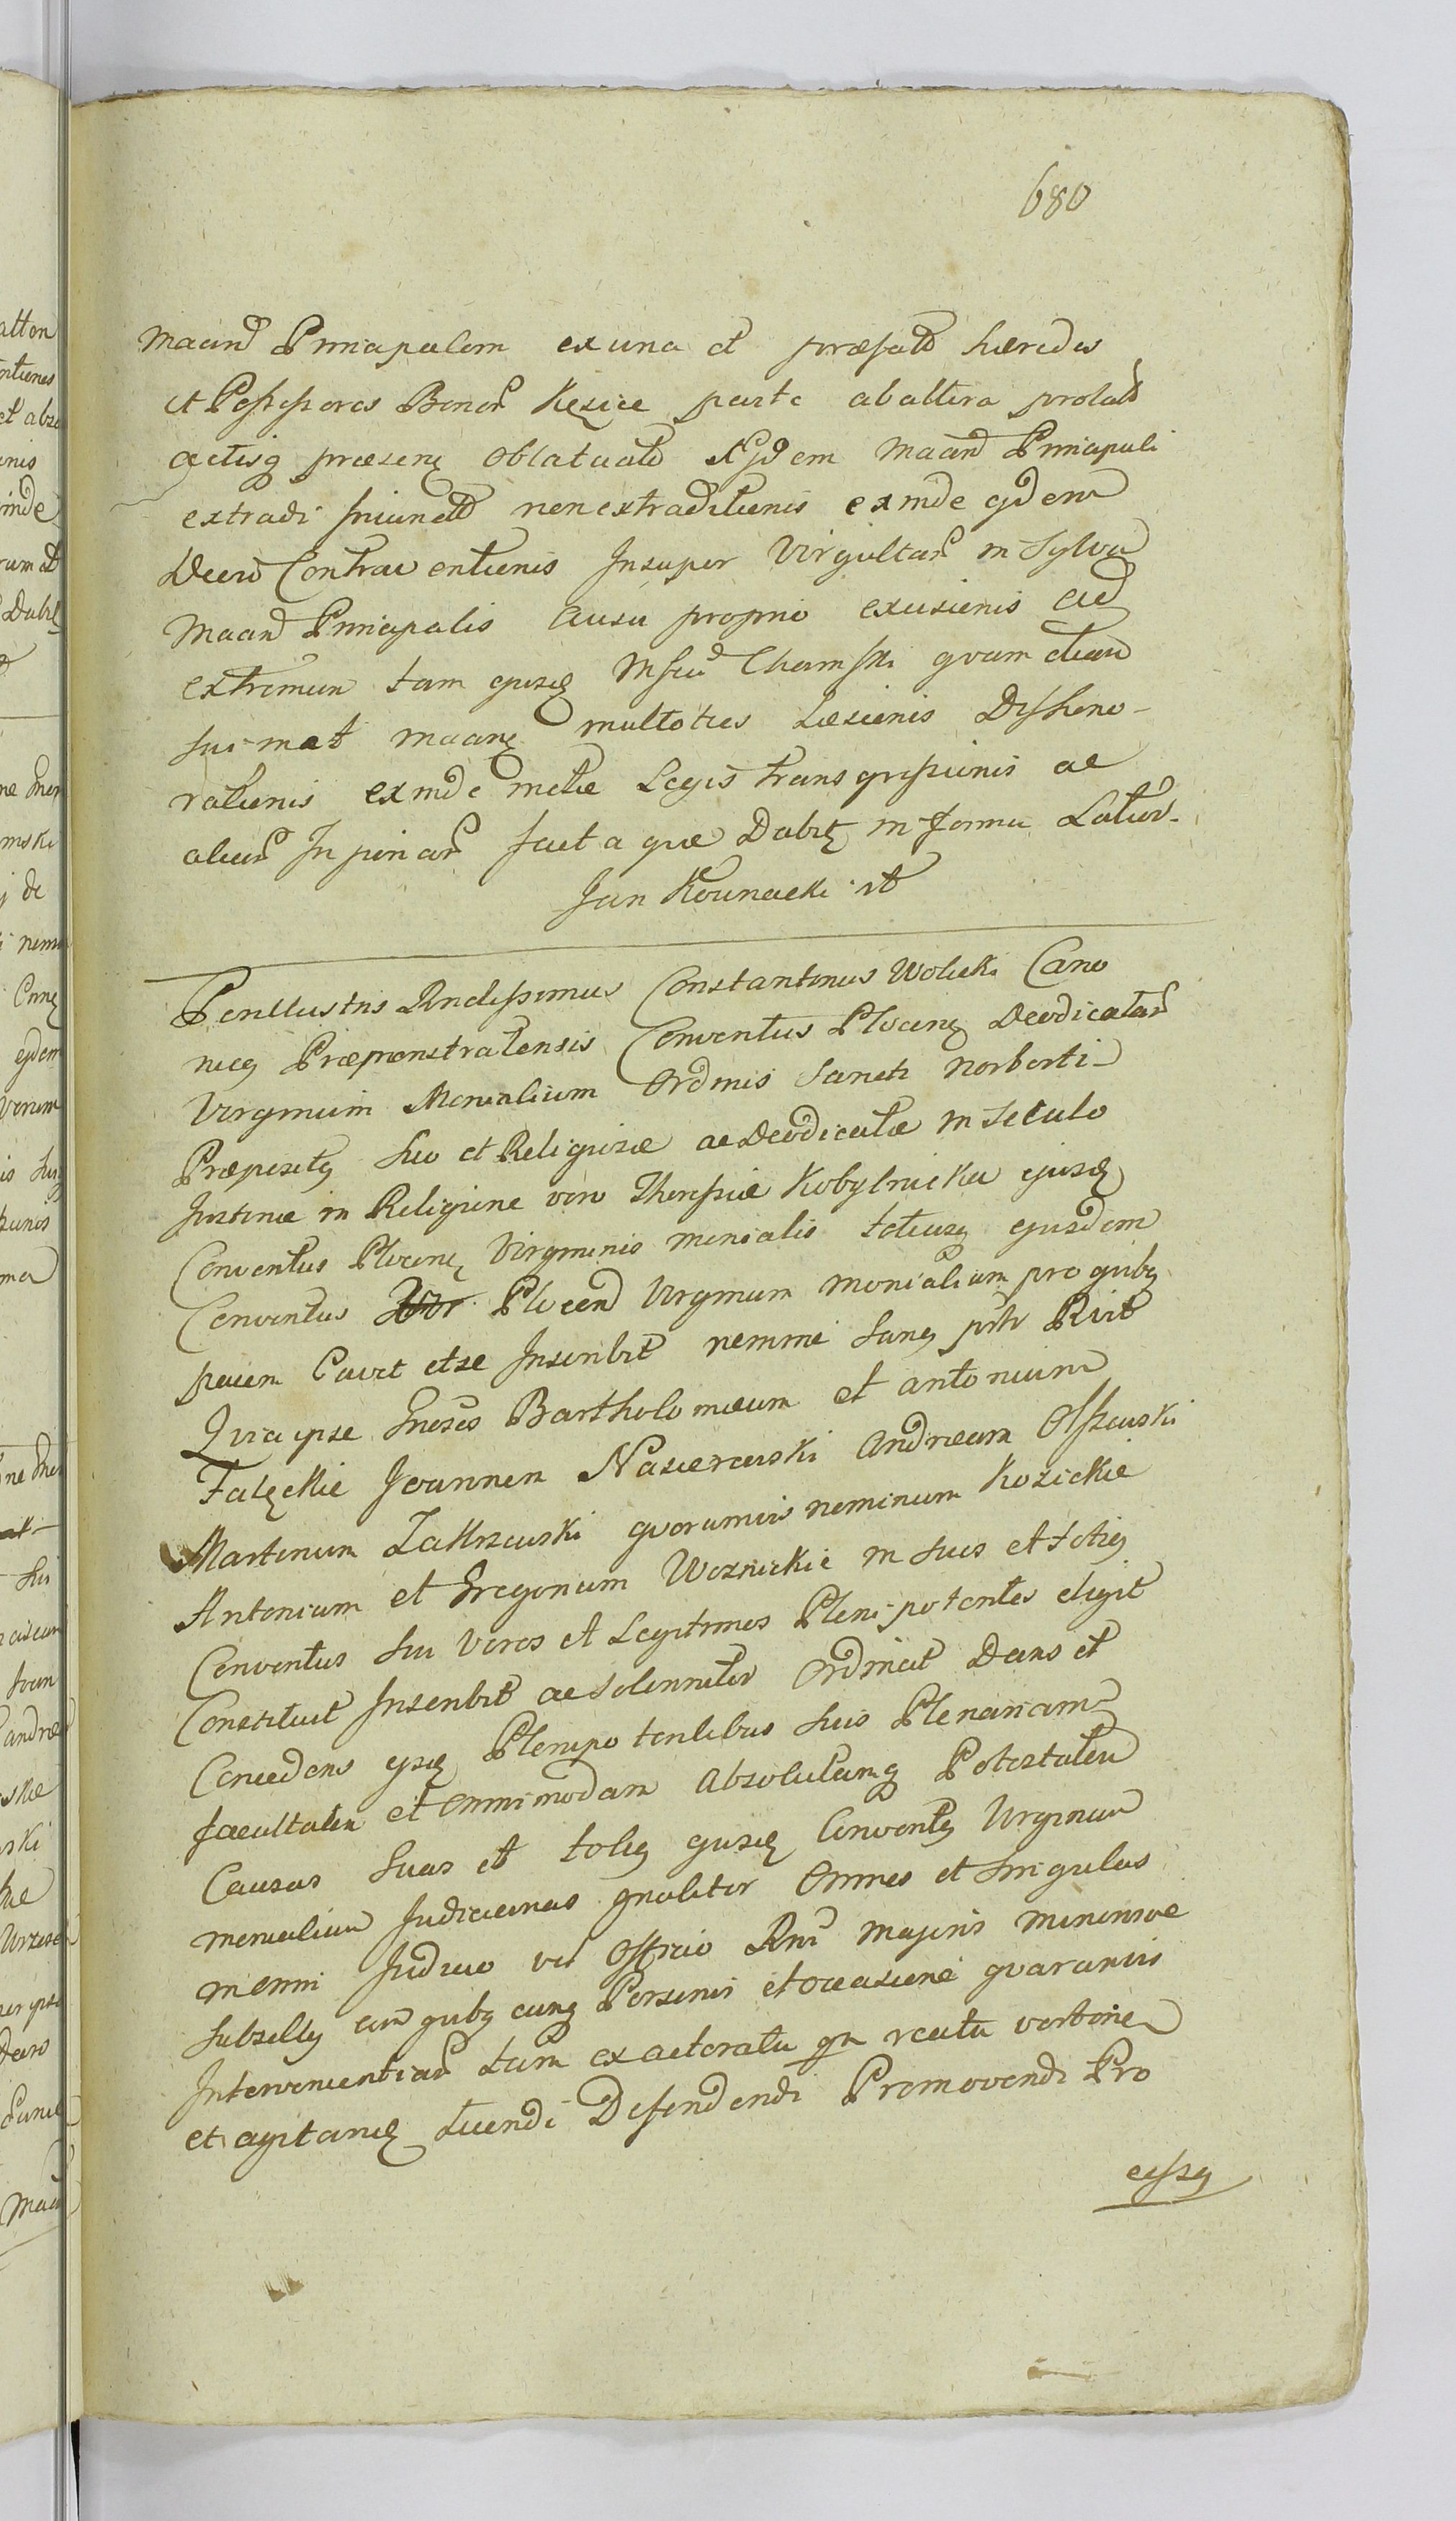 680
Maand Principalem ex una et præfatos hæredes
et Possessores Bonor Kęsice parte ab altera prolatt
actisq præsent oblatuatt Ejdem Maand Principali
extradi iniunctt non extraditionis exinde ejdem
Decreti Contraventionis Insuper Virgultar in Sylva
Maand Principalis ausu proprio excisionis ad
extremum tam ejusd Chamski quam etiam
suimet maand multoties Læsionis Dishono-
rationis exinde Legis transgressionis ac
aliar Injuriar facta quæ Dabit in Termino Latius.
Jan mt
Perillustris Rndissimus Constantinus Wolicki Cano
nicq Præmonstratensis Conventus Plocens Deodicatar
Virginum Monialium Ordinis Sancti Norberti
Præpositq suo et Religiosæ ac Deodicatæ in Seculo
Justinæ in Religione vero Theressiæ Kobylnicka ejusd
Conventus Plocens Virginis monialis totiusq ejusdem
Conventus Plocens Virginum monialium pro quibq
pacem Cavet et se Inscribit nemine Sanq Rivt
Quia ipse Gnosos Bartholomæum et Antonium
Falęckie Joannem Nasierowski Andream Olszewski
Martinum Zakrzewski quorumvis nominum Kozickie
Antonium et Gregorium Woznickie in suos et totiq
Conventus sui veros et Legitimos Plenipotentes elegit
Constituit Inscribit ac solenniter Ordinat Dans et
Concedens ijsd Plenipotentibus suis Plenariam
facultatem et omnimodam Absolutamq Potestatem
Causas suas et totiq ejusd Conventq Virginum
monialium Judiciarias gnaliter Omnes et Singulas
in omni Judicio vel Officio Rni Majoris minorisve
subsellij cum quibq cunq Personis et occasione quarumvis
Intervenientiar tam ex actoratu qm reatu vertone
et agitand tuendi Defendendi Promovendi Pro
cessq